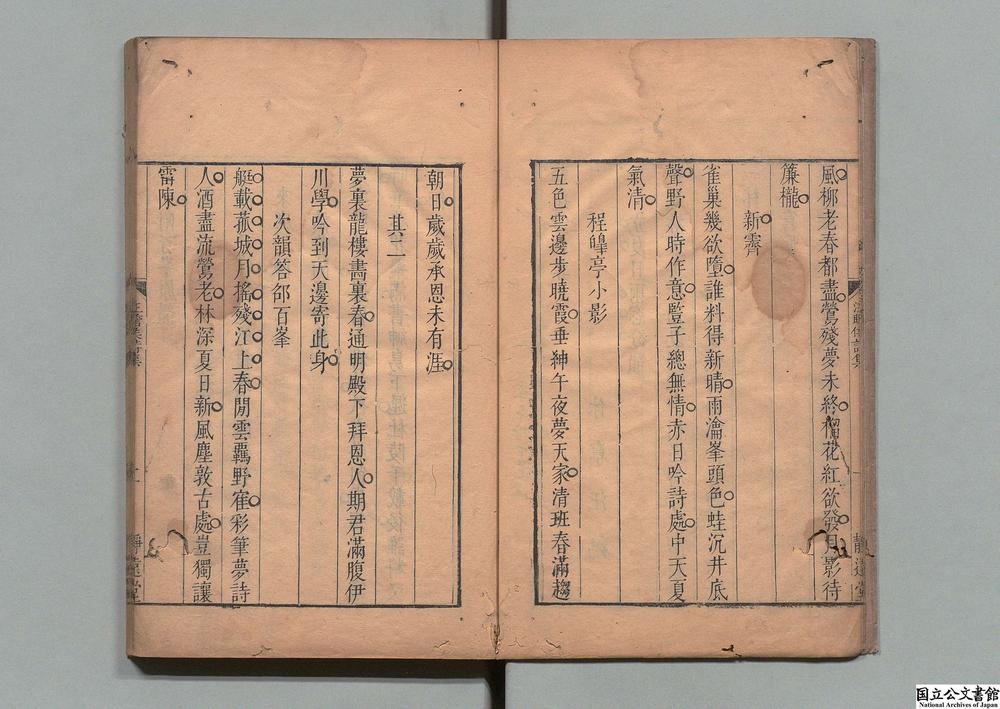 風柳老春都盡鶯殘夢未終榴花紅欲發月影待
簾櫳
新霽
雀巢幾欲墮誰料得新晴雨瀹峯頭色蛙沉井底
聲野人時作意豎子總無情赤日吟詩處中天夏
氣清
程皡亭小影
五色雲邊步曉霞垂紳午夜夢天家清班春滿趨
朝日歲歲承恩未有涯
其二
夢裏龍樓畵裏春通明殿下拜恩人期君滿腹伊
川學吟到天邊寄此身
次韻答邵百峯
艇載菰城月搖殘江上春閒雲羈野寉彩筆夢詩
人酒盡流鶯老林深夏日新風塵敦古處豈獨讓
雷陳
国立公文書館
National Archives of Japan